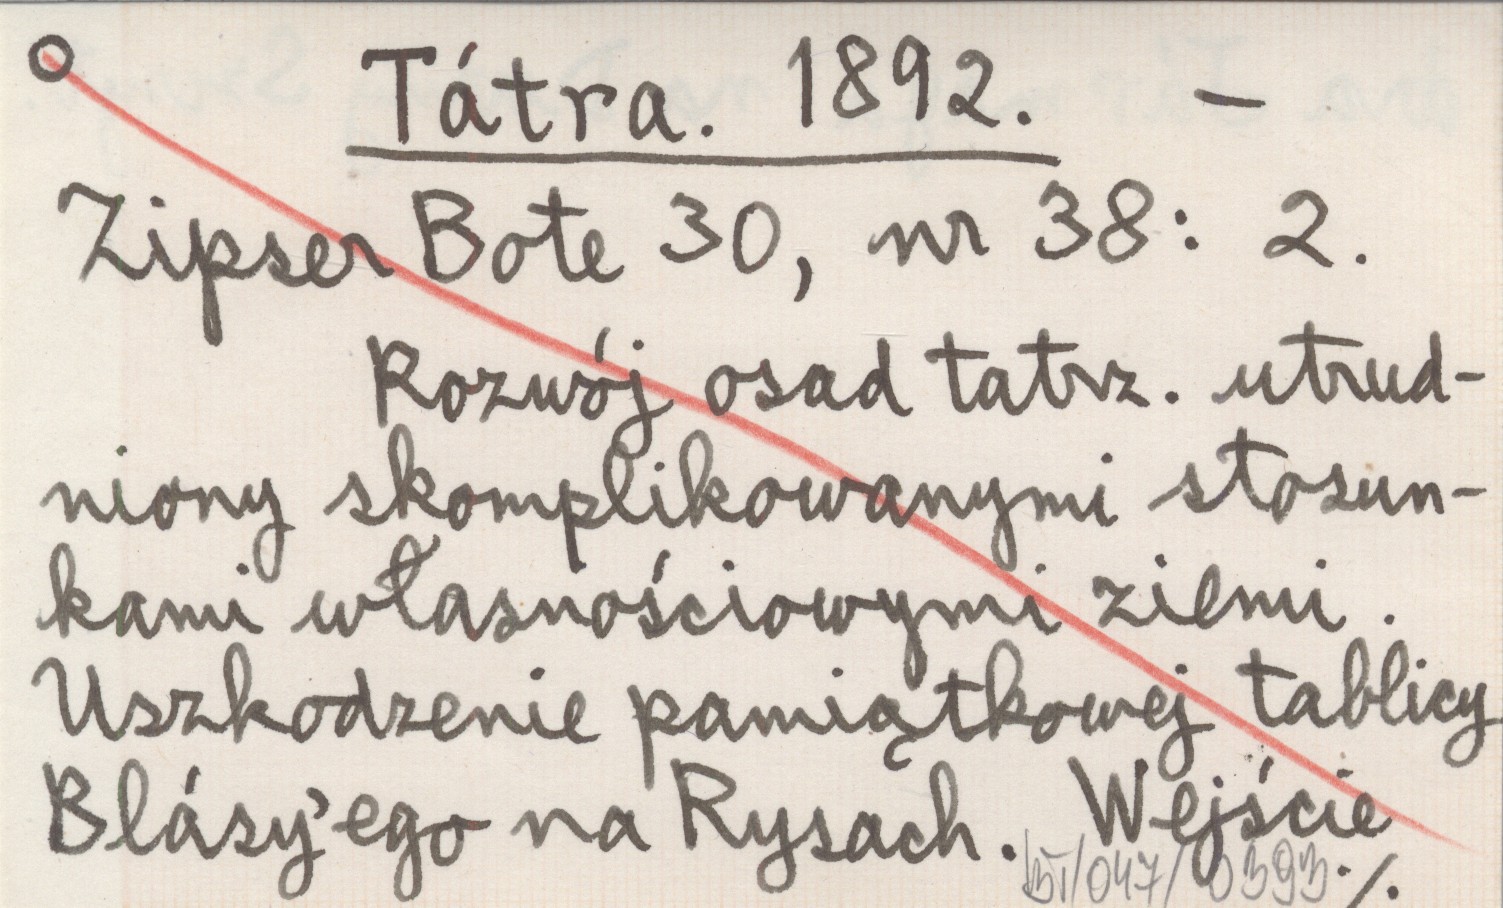 Tátra. 1892. –
Zipser Bote 30, nr 38: 2.
Rozwój osad tatrz. utrud-
niony skomplikowanymi stosun-
kami własnościowymi ziemi.
Uszkodzenie pamiątkowej tablicy
Blásy'ego na Rysach. Wejście
BT/047/0393 ./.